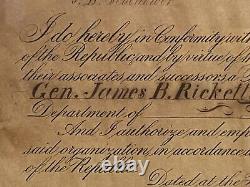 I do hereby, in Conformity with
of the Republic, and by virtue of
their associates and successors a
Gen. James B. Ricket
Department of
And I authoroze and emp
said organization, in accordance
of the Republic
Dated at the